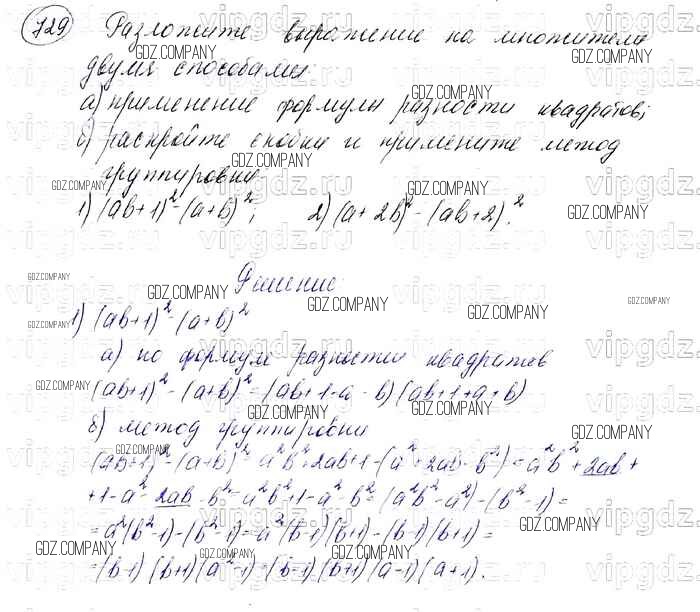 729 Разложите выражение на множители
двумя способами:
а) применение формулы разности квадратов;
б) раскройте скобки и примените метод
группировки:
1) (ab+1)²-(a+b)²; 2) (a+2b)²-(ab+2)².
Решение:
1) (ab+1)²-(a+b)²
а) по формуле разности квадратов
(ab+1)²-(a+b)²=(ab+1-a-b)(ab+1+a+b)
б) метод группировки
(ab+1)²-(a+b)²=a²b²+2ab+1-(a²+2ab-b²)=a²b²+2ab+
+1-a²-2ab-b²=a²b²+1-a²-b²=(a²b²-a²)-(b²-1)=
=a²(b²-1)-(b²-1)=a²(b-1)(b+1)-(b-1)(b+1)=
=(b-1)(b+1)(a²-1)=(b-1)(b+1)(a-1)(a+1).